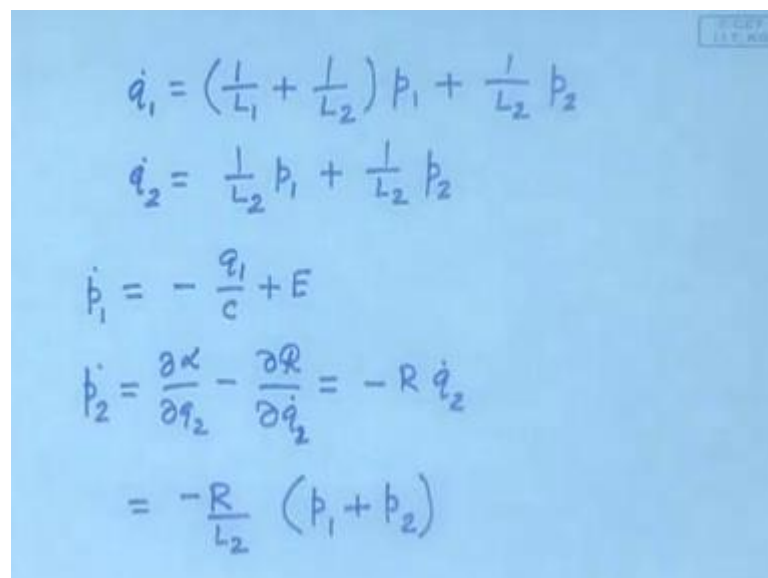 C CET
I.I.T. KG
q̇₁ = (1/L₁ + 1/L₂) p₁ + 1/L₂ p₂
q̇₂ = 1/L₂ p₁ + 1/L₂ p₂
ṗ₁ = - q₁/C + E
ṗ₂ = ∂ℒ/∂q₂ - ∂ℛ/∂q̇₂ = - R q̇₂
= -R/L₂ (p₁ + p₂)